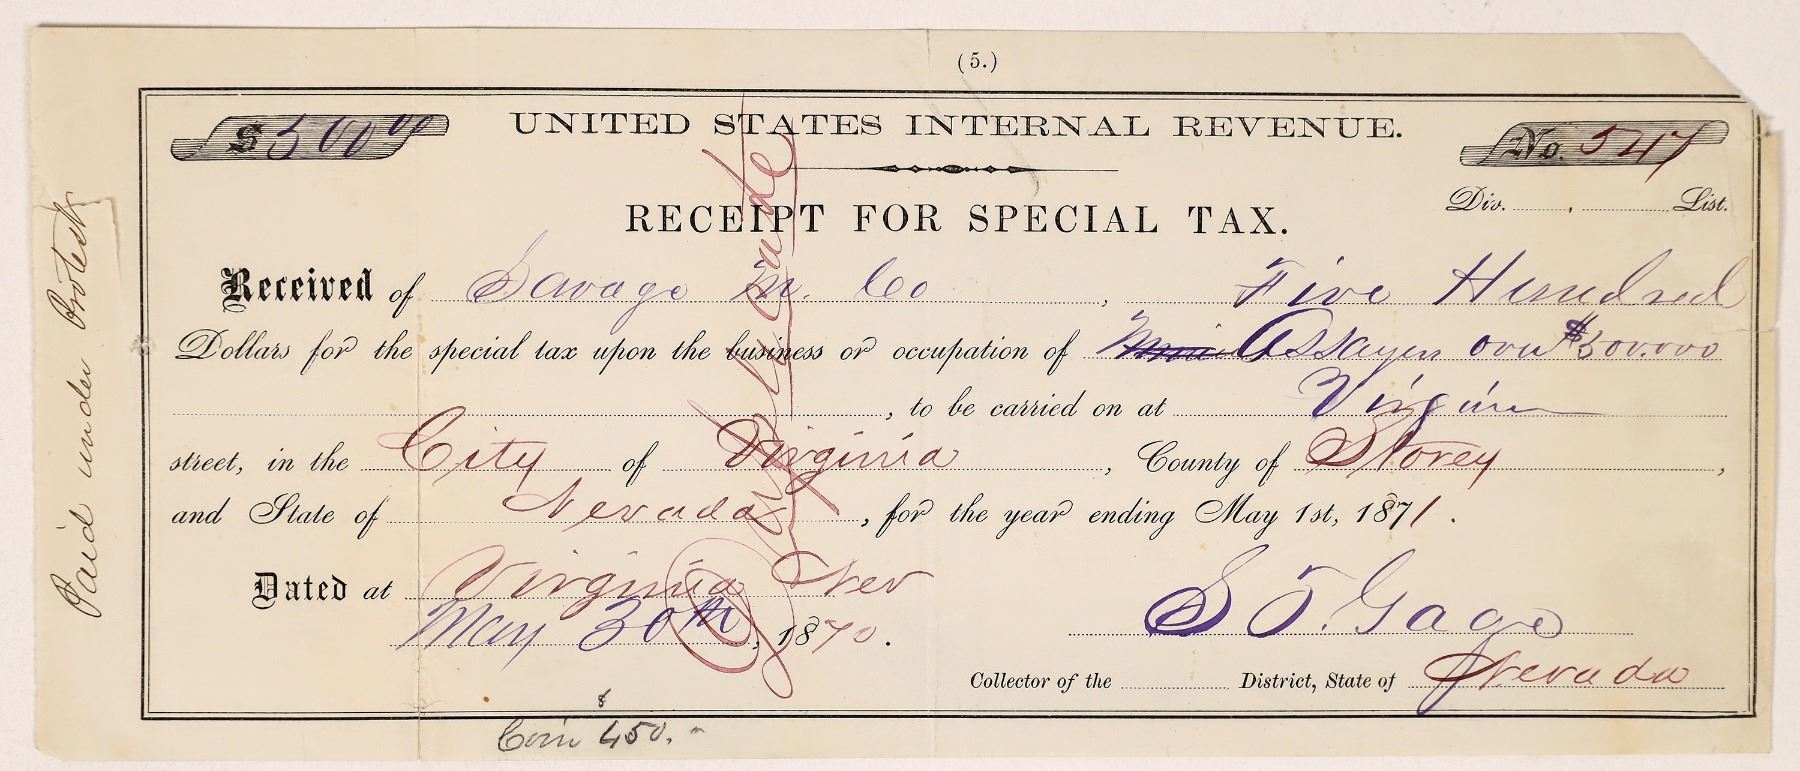 (5.)
$ 500 00
UNITED STATES INTERNAL REVENUE.
No. 547
Div. , List.
RECEIPT FOR SPECIAL TAX.
Received of Savage M. Co , Five Hundred
Dollars for the special tax upon the business or occupation of Assayer over $500.000
, to be carried on at Virginia
street, in the City of Virginia , County of Storey ,
and State of Nevada , for the year ending May 1st, 1871.
Dated at Virginia Nev
May 30th, 1870.
S T. Gage
Collector of the District, State of Nevada
Duplicate
Paid under Protest
Coin $ 450.